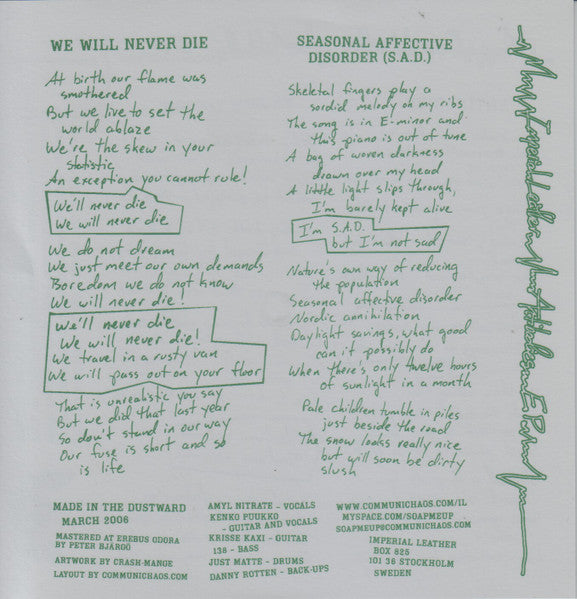 WE WILL NEVER DIE
At birth our flame was
smothered
But we live to set the
world ablaze
We're the skew in your
statistic
An exception you cannot rule!
We'll never die
We will never die
We do not dream
We just meet our own demands
Boredom we do not know
We will never die!
We'll never die
We will never die!
We travel in a rusty van
We will pass out on your floor
That is unrealistic you say
But we did that last year
So don't stand in our way
Our fuse is short and so
is life
SEASONAL AFFECTIVE
DISORDER (S.A.D.)
Skeletal fingers play a
sordid melody on my ribs
The song is in E-minor and
this piano is out of tune
A bag of woven darkness
drawn over my head
A little light slips through,
I'm barely kept alive
I'm S.A.D.
but I'm not sad
Nature's own way of reducing
the population
Seasonal affective disorder
Nordic annihilation
Daylight savings, what good
can it possibly do
When there's only twelve hours
of sunlight in a month
Pale children tumble in piles
just beside the road
The snow looks really nice
but will soon be dirty
slush
Imperial Leather Antibodies EP
MADE IN THE DUSTWARD
MARCH 2006
MASTERED AT EREBUS ODORA
BY PETER BJÄRGÖ
ARTWORK BY CRASH-MANGE
LAYOUT BY COMMUNICHAOS.COM
AMYL NITRATE - VOCALS
KENKO PUUKKO
- GUITAR AND VOCALS
KRISSE KAXI - GUITAR
138 - BASS
JUST MATTE - DRUMS
DANNY ROTTEN - BACK-UPS
WWW.COMMUNICHAOS.COM/IL
MYSPACE.COM/SOAPMEUP
SOAPMEUP@COMMUNICHAOS.COM
IMPERIAL LEATHER
BOX 825
101 36 STOCKHOLM
SWEDEN